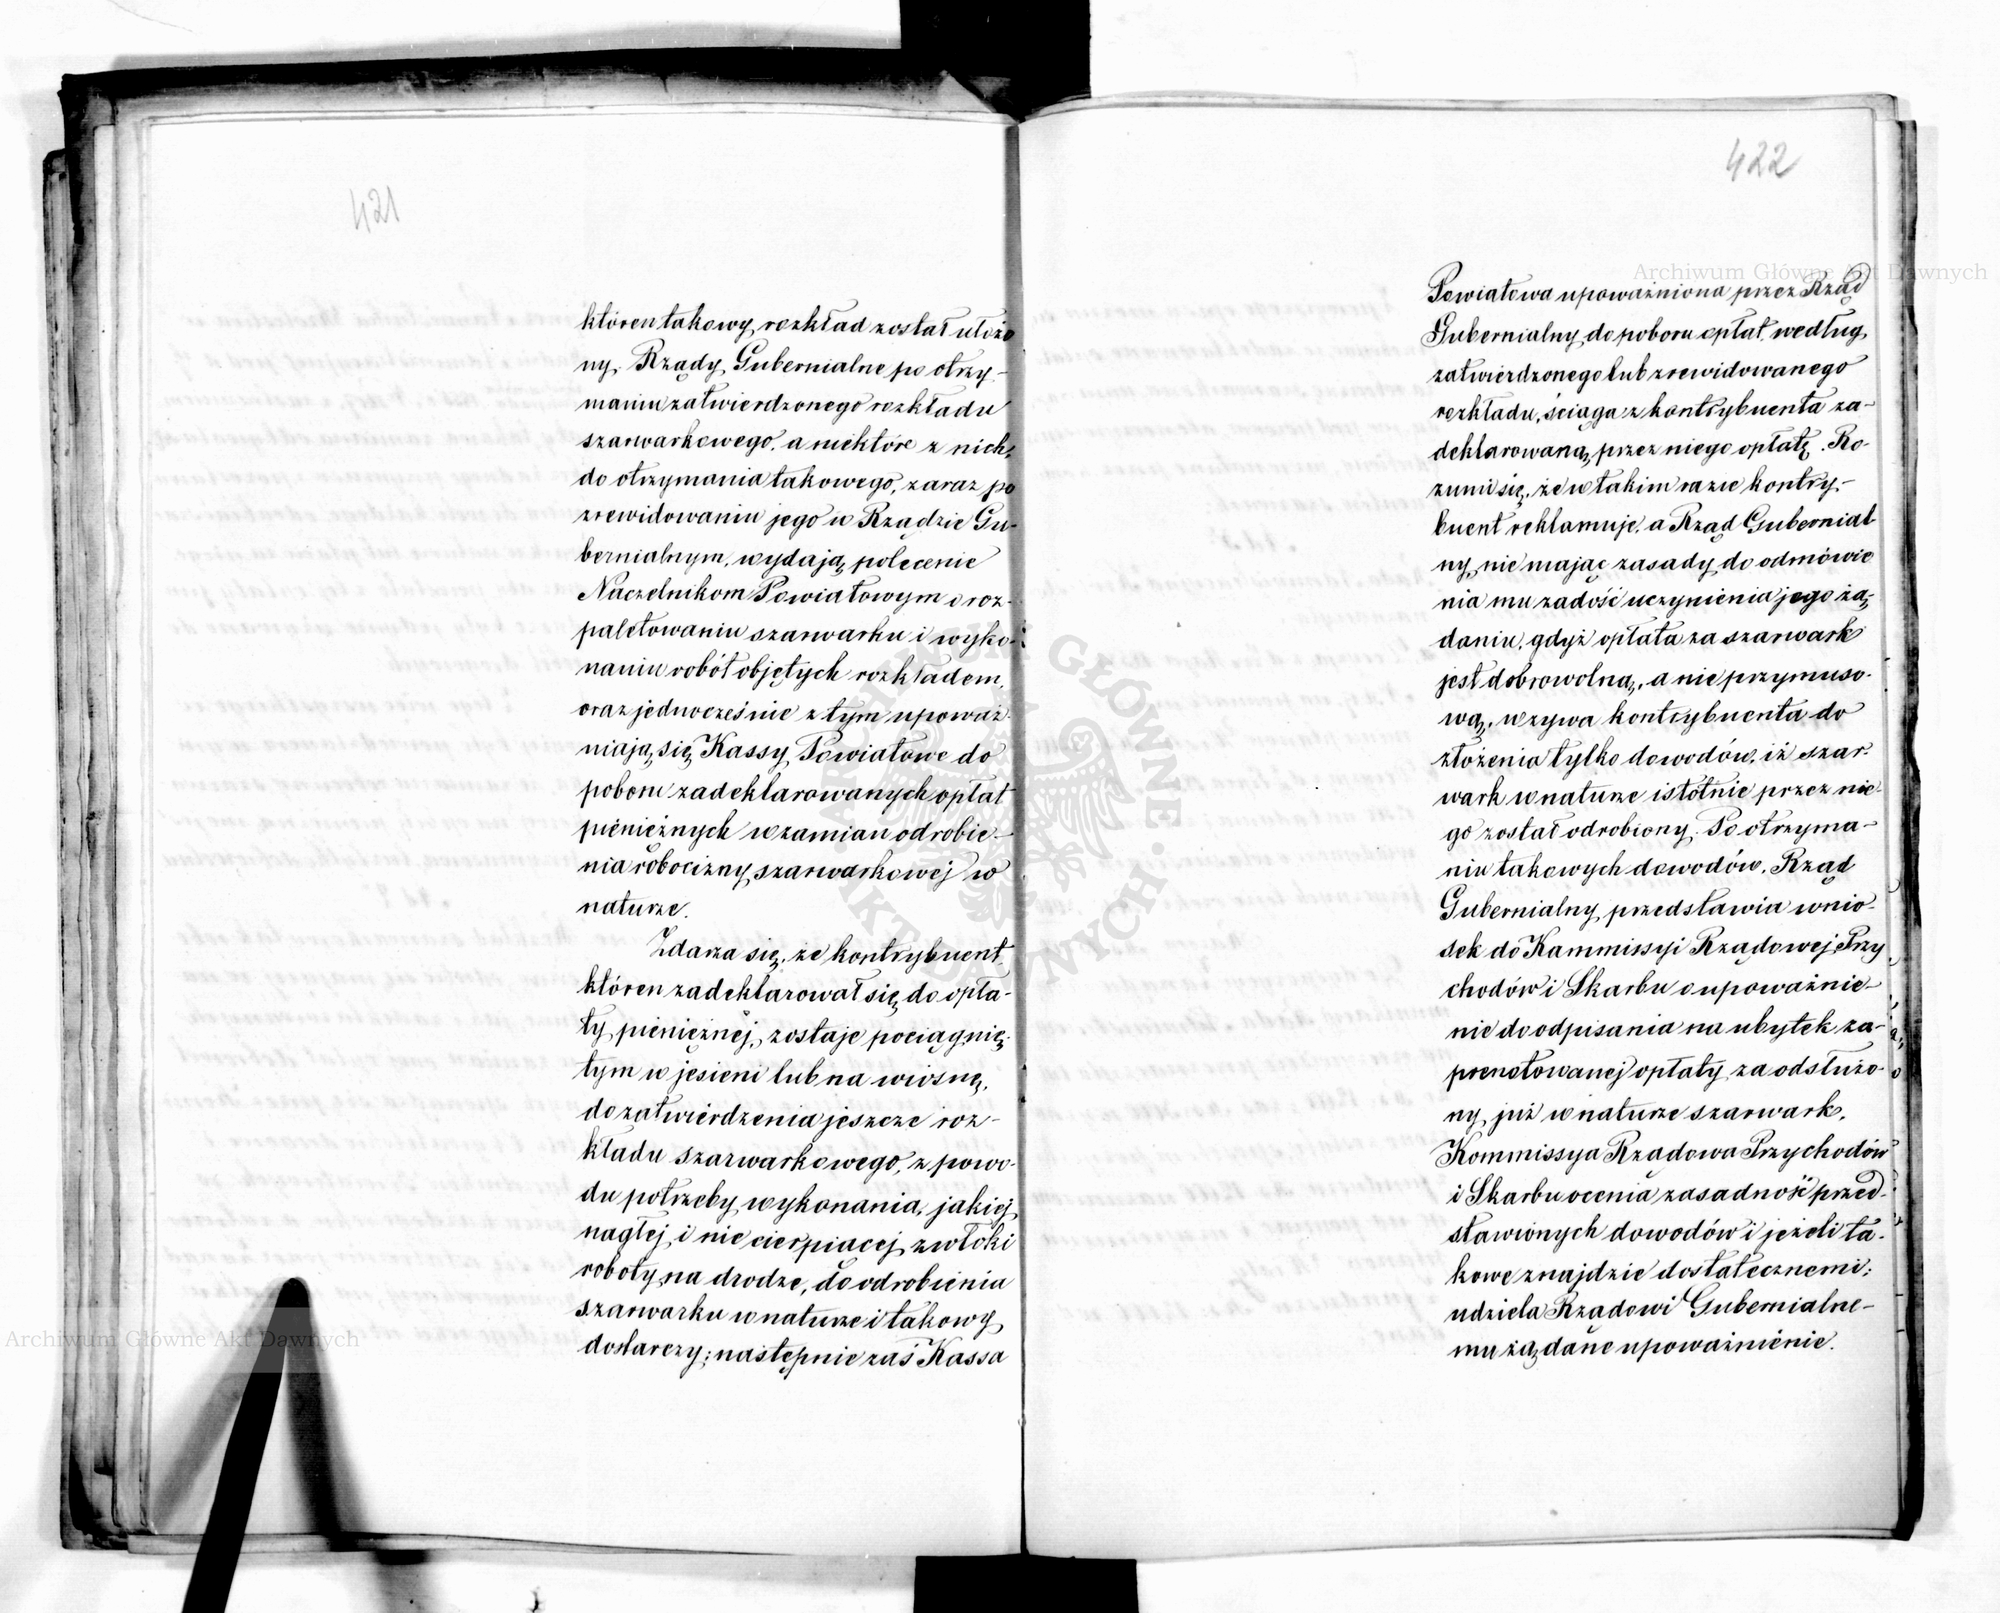 421
któren takowy rozkład został ułożo
ny. Rządy Gubernialne po otrzy-
maniu zatwierdzonego rozkładu
szarwarkowego, a niektóre z nich,
do otrzymania takowego, zaraz po
zrewidowaniu jego w Rządzie Gu-
bernialnym, wydają polecenie
Naczelnikom Powiatowym o roz-
paletowaniu szarwarku i wyko-
naniu robót objętych rozkładem,
oraz jednocześnie z tym upoważ-
niają się Kassy Powiatowe do
poboru zadeklarowanych opłat
pieniężnych wzamian odrobie-
nia robocizny szarwarkowej w
naturze.
Zdarza się, że kontrybuent,
któren zadeklarował się do opła-
ty pieniężnéj, zostaje pociągnię-
tym w jesieni lub na wiosnę,
do zatwierdzenia jeszcze roz-
kładu szarwarkowego, z powo-
du potrzeby wykonania, jakiej
nagłej i nie cierpiącej zwłoki
roboty na drodze, do odrobienia
szarwarku w naturze i takowy
dostarczy; następnie zaś Kassa
422
Powiatowa upoważniona przez Rząd
Gubernialny do poboru opłat, według
zatwierdzonego lub zrewidowanego
rozkładu, ściąga z kontrybuenta za-
deklarowaną przez niego opłatę. Ro-
zumi się, że w takim razie kontry-
buent reklamuje, a Rząd Gubernial
ny nie mając zasady do odmówie
nia mu zadość uczynienia jego żą-
daniu, gdyż opłata za szarwark
jest dobrowolną, a nie przymuso-
wą, wzywa kontrybuenta do
złożenia tylko dowodów, iż szar-
wark w naturze istotnie przez nie-
go został odrobiony. Po otrzyma-
niu takowych dowodów, Rząd
Gubernialny przedstawia wnio-
sek do Kammissyi Rządowej Przy
chodów i Skarbu o upoważnie-
nie do odpisania na ubytek za-
prenotowanej opłaty za odsłużo-
ny już w naturze szarwark.
Kommissya Rządowa Przychodów
i Skarbu ocenia zasadność przed-
stawionych dowodów i jeżeli ta-
kowe znajdzie dostatecznemi;
udziela Rządowi Gubernialne-
mu żądane upoważnienie.
Archiwum Główne Akt Dawnych
Archiwum Główne Akt Dawnych